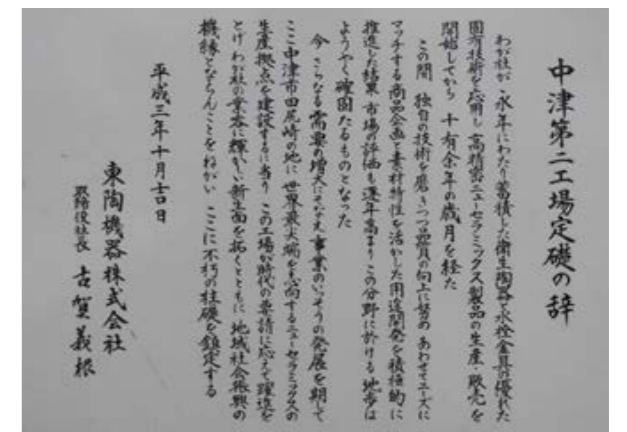 中津第二工場定礎の辞
わが社が 永年にわたり蓄積した衛生陶器と水栓金具の優れた
固有技術を応用し 高精密ニューセラミックス製品の生産・販売を
開始してから 十有余年の歳月を経た
この間 独自の技術を磨きつつ品質の向上に努め あわせてニーズに
マッチする商品企画と素材特性を活かした用途開発を積極的に
推進した結果 市場の評価も逐年高まり この分野に於ける地歩は
ようやく確固たるものとなった
今 さらなる需要の増大にそなえ 事業のいっそうの発展を期して
ここ中津市田尻崎の地に 世界最先端を志向するニューセラミックスの
生産拠点を建設するに当り この工場が時代の要請に応えて躍進を
とげ わが社の業容に輝かしい新生面を拓くとともに 地域社会振興の
機縁とならんことをねがい ここに不朽の柱礎を鎮定する
平成三年十月吉日
東陶機器株式会社
取締役社長 古賀義根